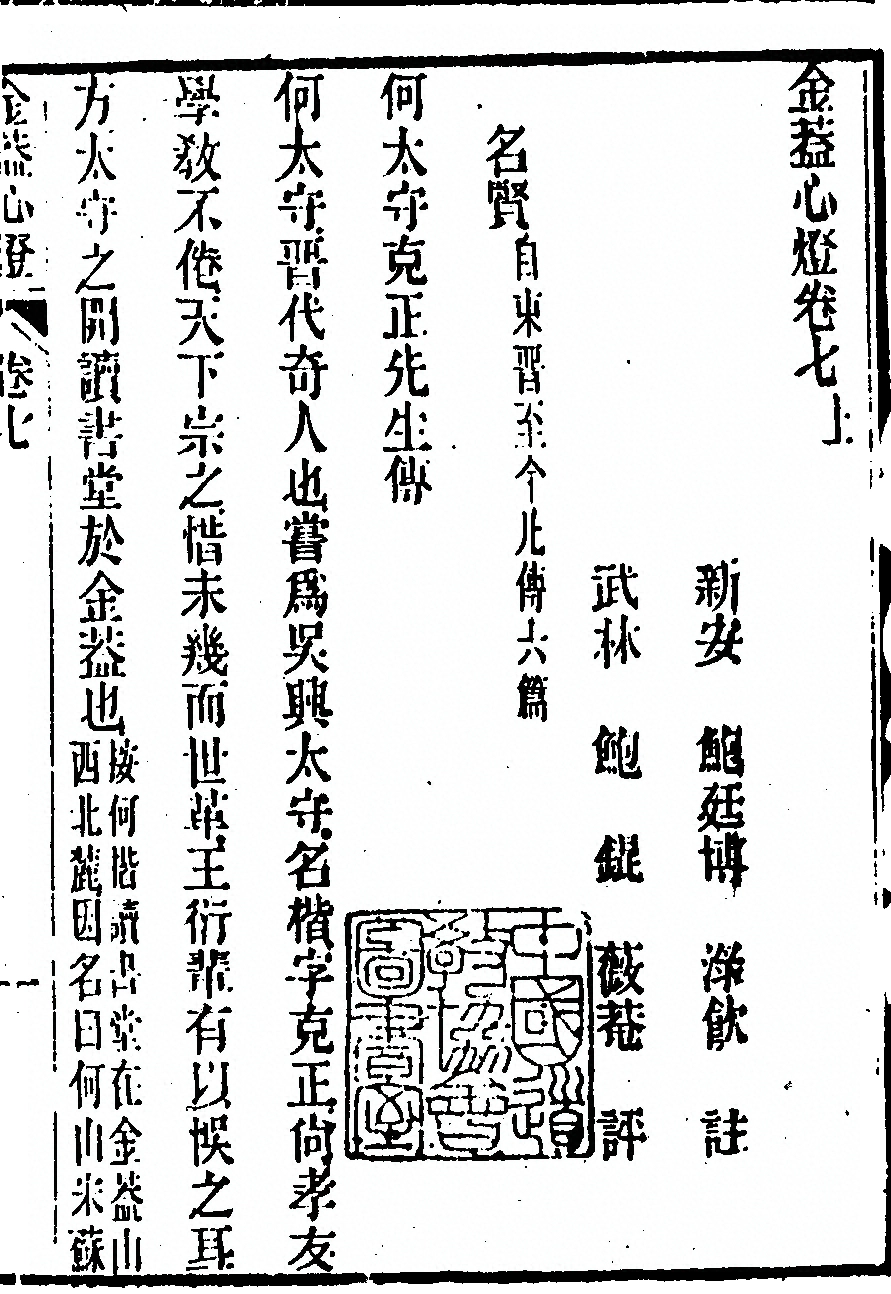 金葢心燈卷七上
新安 鮑廷博 淥飮 註
武林 鮑 錕 薇菴 評
名賢自東晉至今凡傳六篇
何太守克正先生傳
何太守晉代奇人也嘗爲吳興太守名楷字克正尙孝友
學敎不倦天下宗之惜未幾而世革王衍輩有以悞之耳
方太守之開讀書堂於金葢也
按何楷讀書堂在金葢山
西北麓因名曰何山宋蘇
金葢心燈 卷七
中國道敎協會圖書室